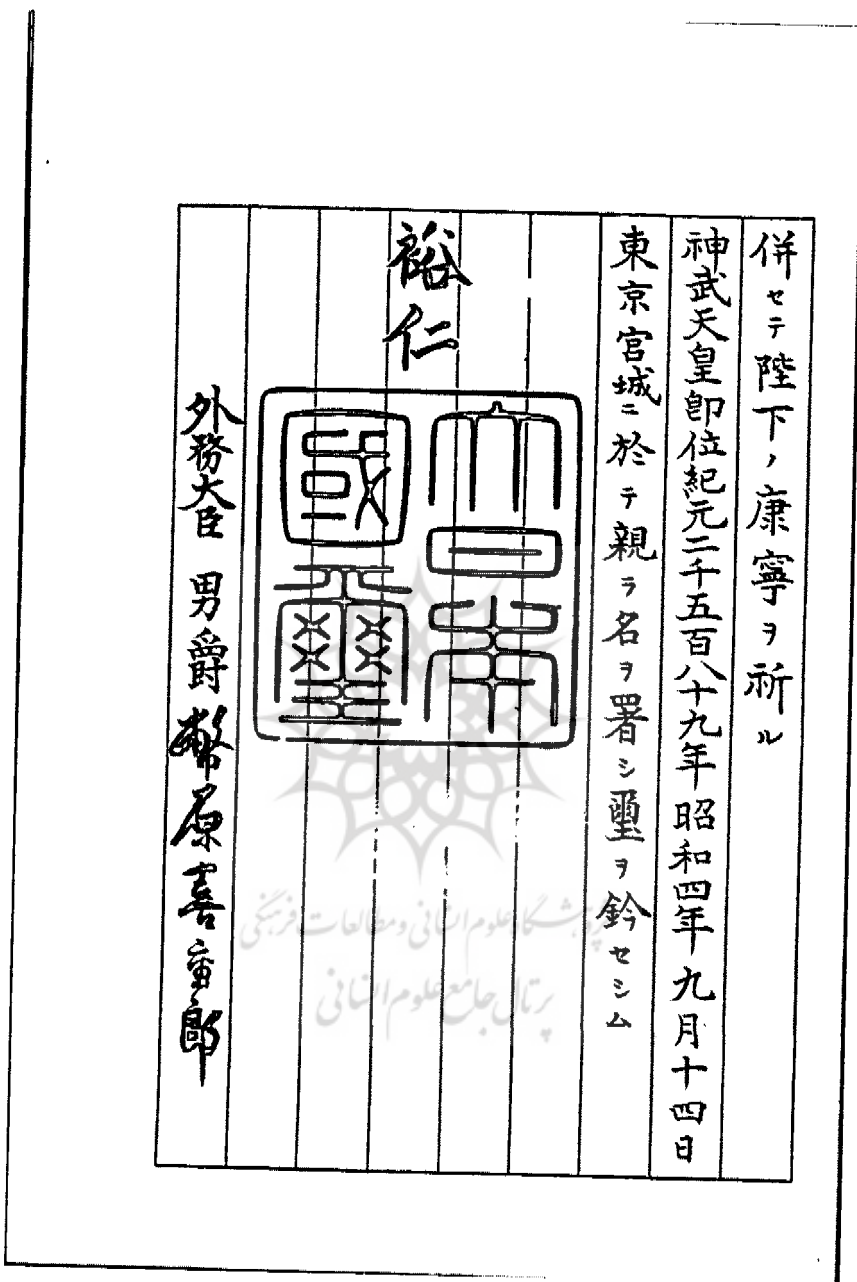 併セテ陛下ノ康寧ヲ祈ル
神武天皇即位紀元二千五百八十九年昭和四年九月十四日
東京宮城ニ於テ親ラ名ヲ署シ璽ヲ鈐セシム
裕仁
大日本國璽
外務大臣 男爵 幣原喜重郎
پژوهشگاه علوم انسانی و مطالعات فرهنگی
پرتال جامع علوم انسانی